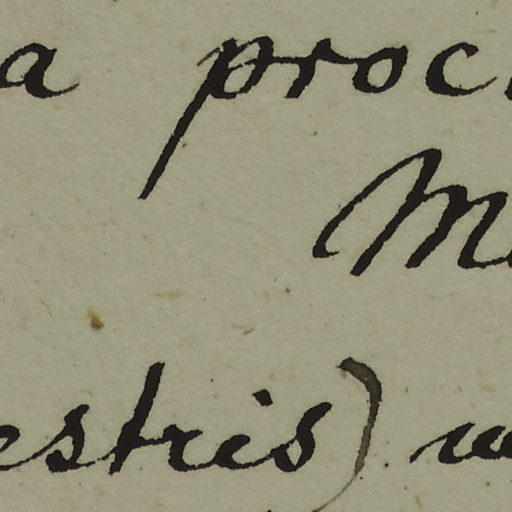 a proc
M
estris)